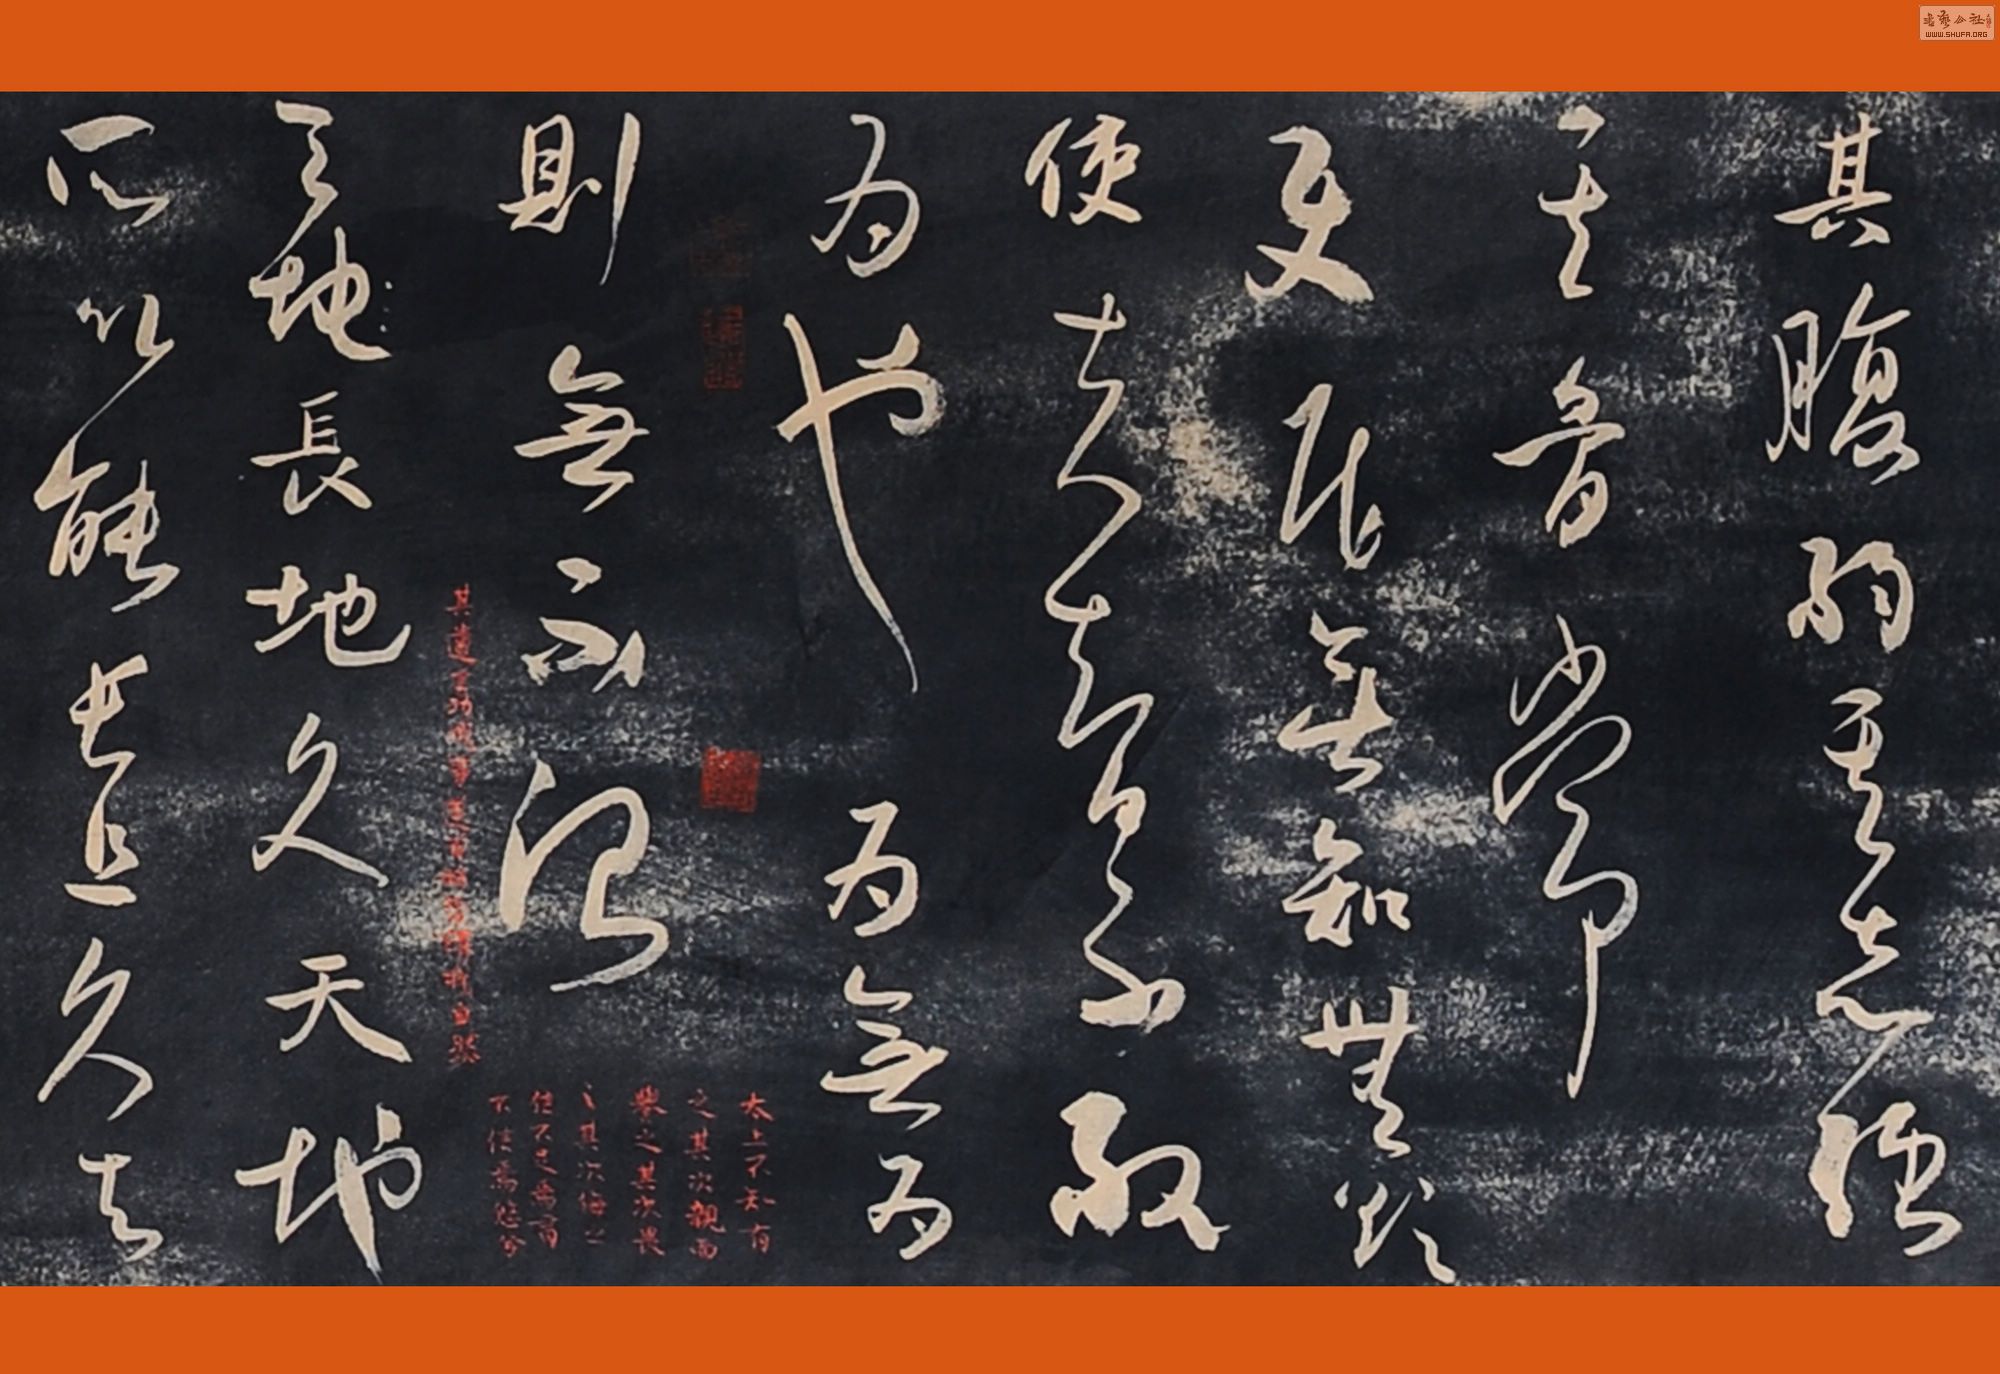 其腹弱其志強
其骨常
使民無知無欲
使夫知者不敢
為也為無為
則無不治
天地長地久天地
所以能長且久者
太上不知有
之其次親而
譽之其次畏
之其次侮之
信不足焉有
不信焉悠兮
其遺言功成事遂百姓皆謂我自然
書藝公社
WWW.SHUFA.ORG